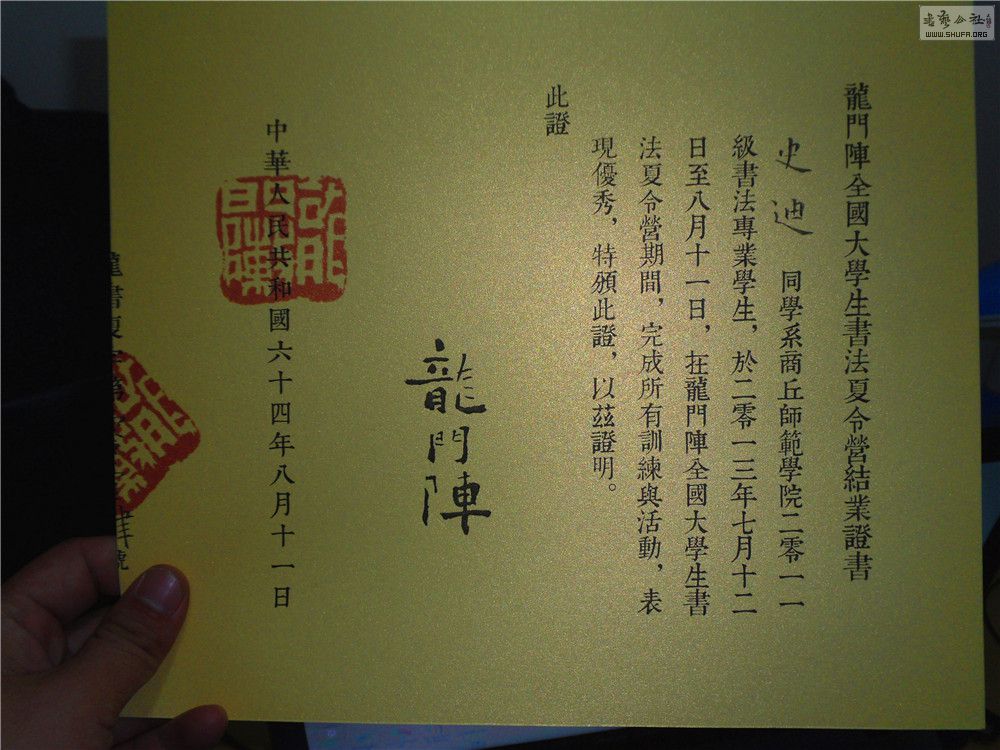 龍門陣全國大學生書法夏令營結業證書
史迪 同學系商丘師範學院二零一一
級書法專業學生，於二零一三年七月十二
日至八月十一日，在龍門陣全國大學生書
法夏令營期間，完成所有訓練與活動，表
現優秀，特頒此證，以茲證明。
此證
龍門陣
中華人民共和國六十四年八月十一日
龍書夏
號
WWW.SHUFA.ORG